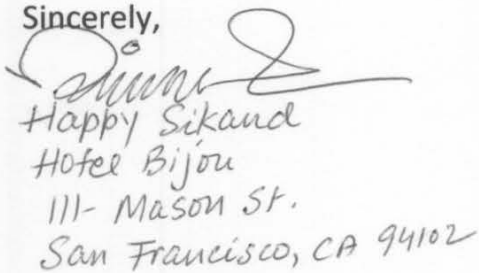 Sincerely,
Happy Sikand
Hotel Bijou
111- Mason St.
San Francisco, CA 94102